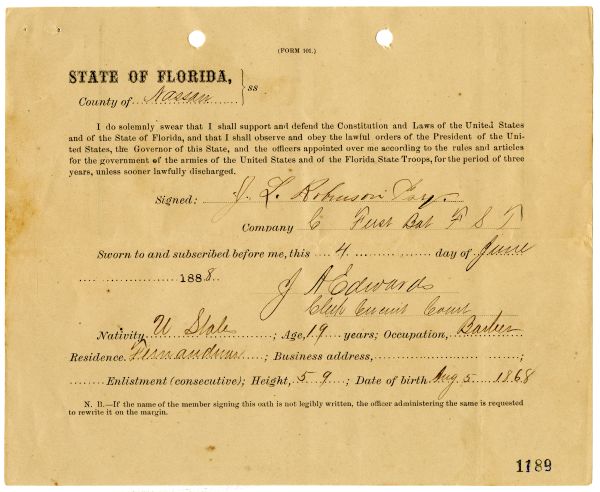 (FORM 101.)
STATE OF FLORIDA, } ss
County of Nassau
I do solemnly swear that I shall support and defend the Constitution and Laws of the United States
and of the State of Florida, and that I shall observe and obey the lawful orders of the President of the Uni-
ted States, the Governor of this State, and the officers appointed over me according to the rules and articles
for the government of the armies of the United States and of the Florida State Troops, for the period of three
years, unless sooner lawfully discharged.
Signed: J. L. Robinson
Company C First Bat F S T
Sworn to and subscribed before me, this 4 day of June
1888.
J A Edwards
Clerk Circuit Court
Nativity U States; Age, 19 years; Occupation, Barber
Residence. Fernandina; Business address, ;
Enlistment (consecutive); Height, 5 9; Date of birth Aug 5 1868
N. B.—If the name of the member signing this oath is not legibly written, the officer administering the same is requested
to rewrite it on the margin.
1189